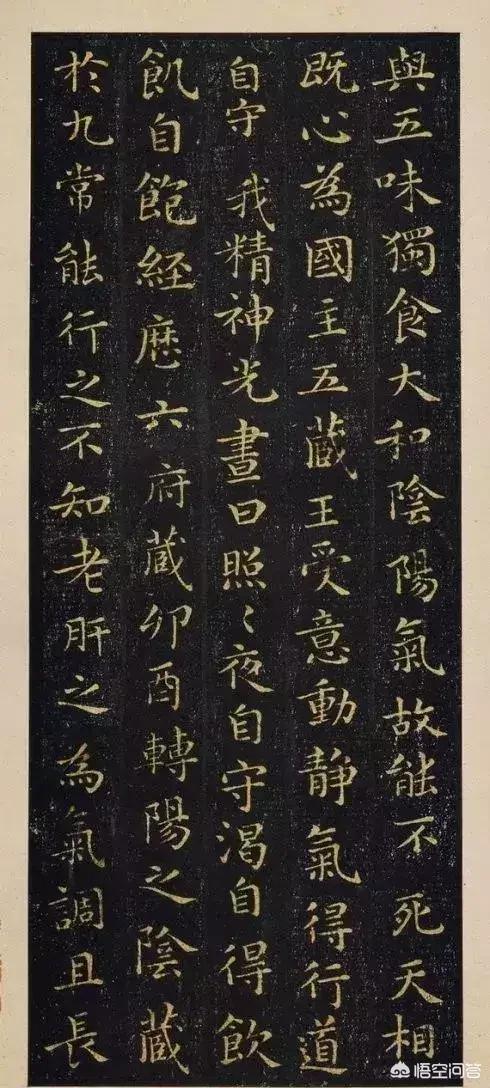 與五味獨食大和陰陽氣故能不死天相
既心為國主五藏王受意動静氣得行道
自守我精神光晝日照〻夜自守渴自得飲
飢自飽經歷六府藏卯酉轉陽之陰藏
於九常能行之不知老肝之為氣調且長
悟空问答